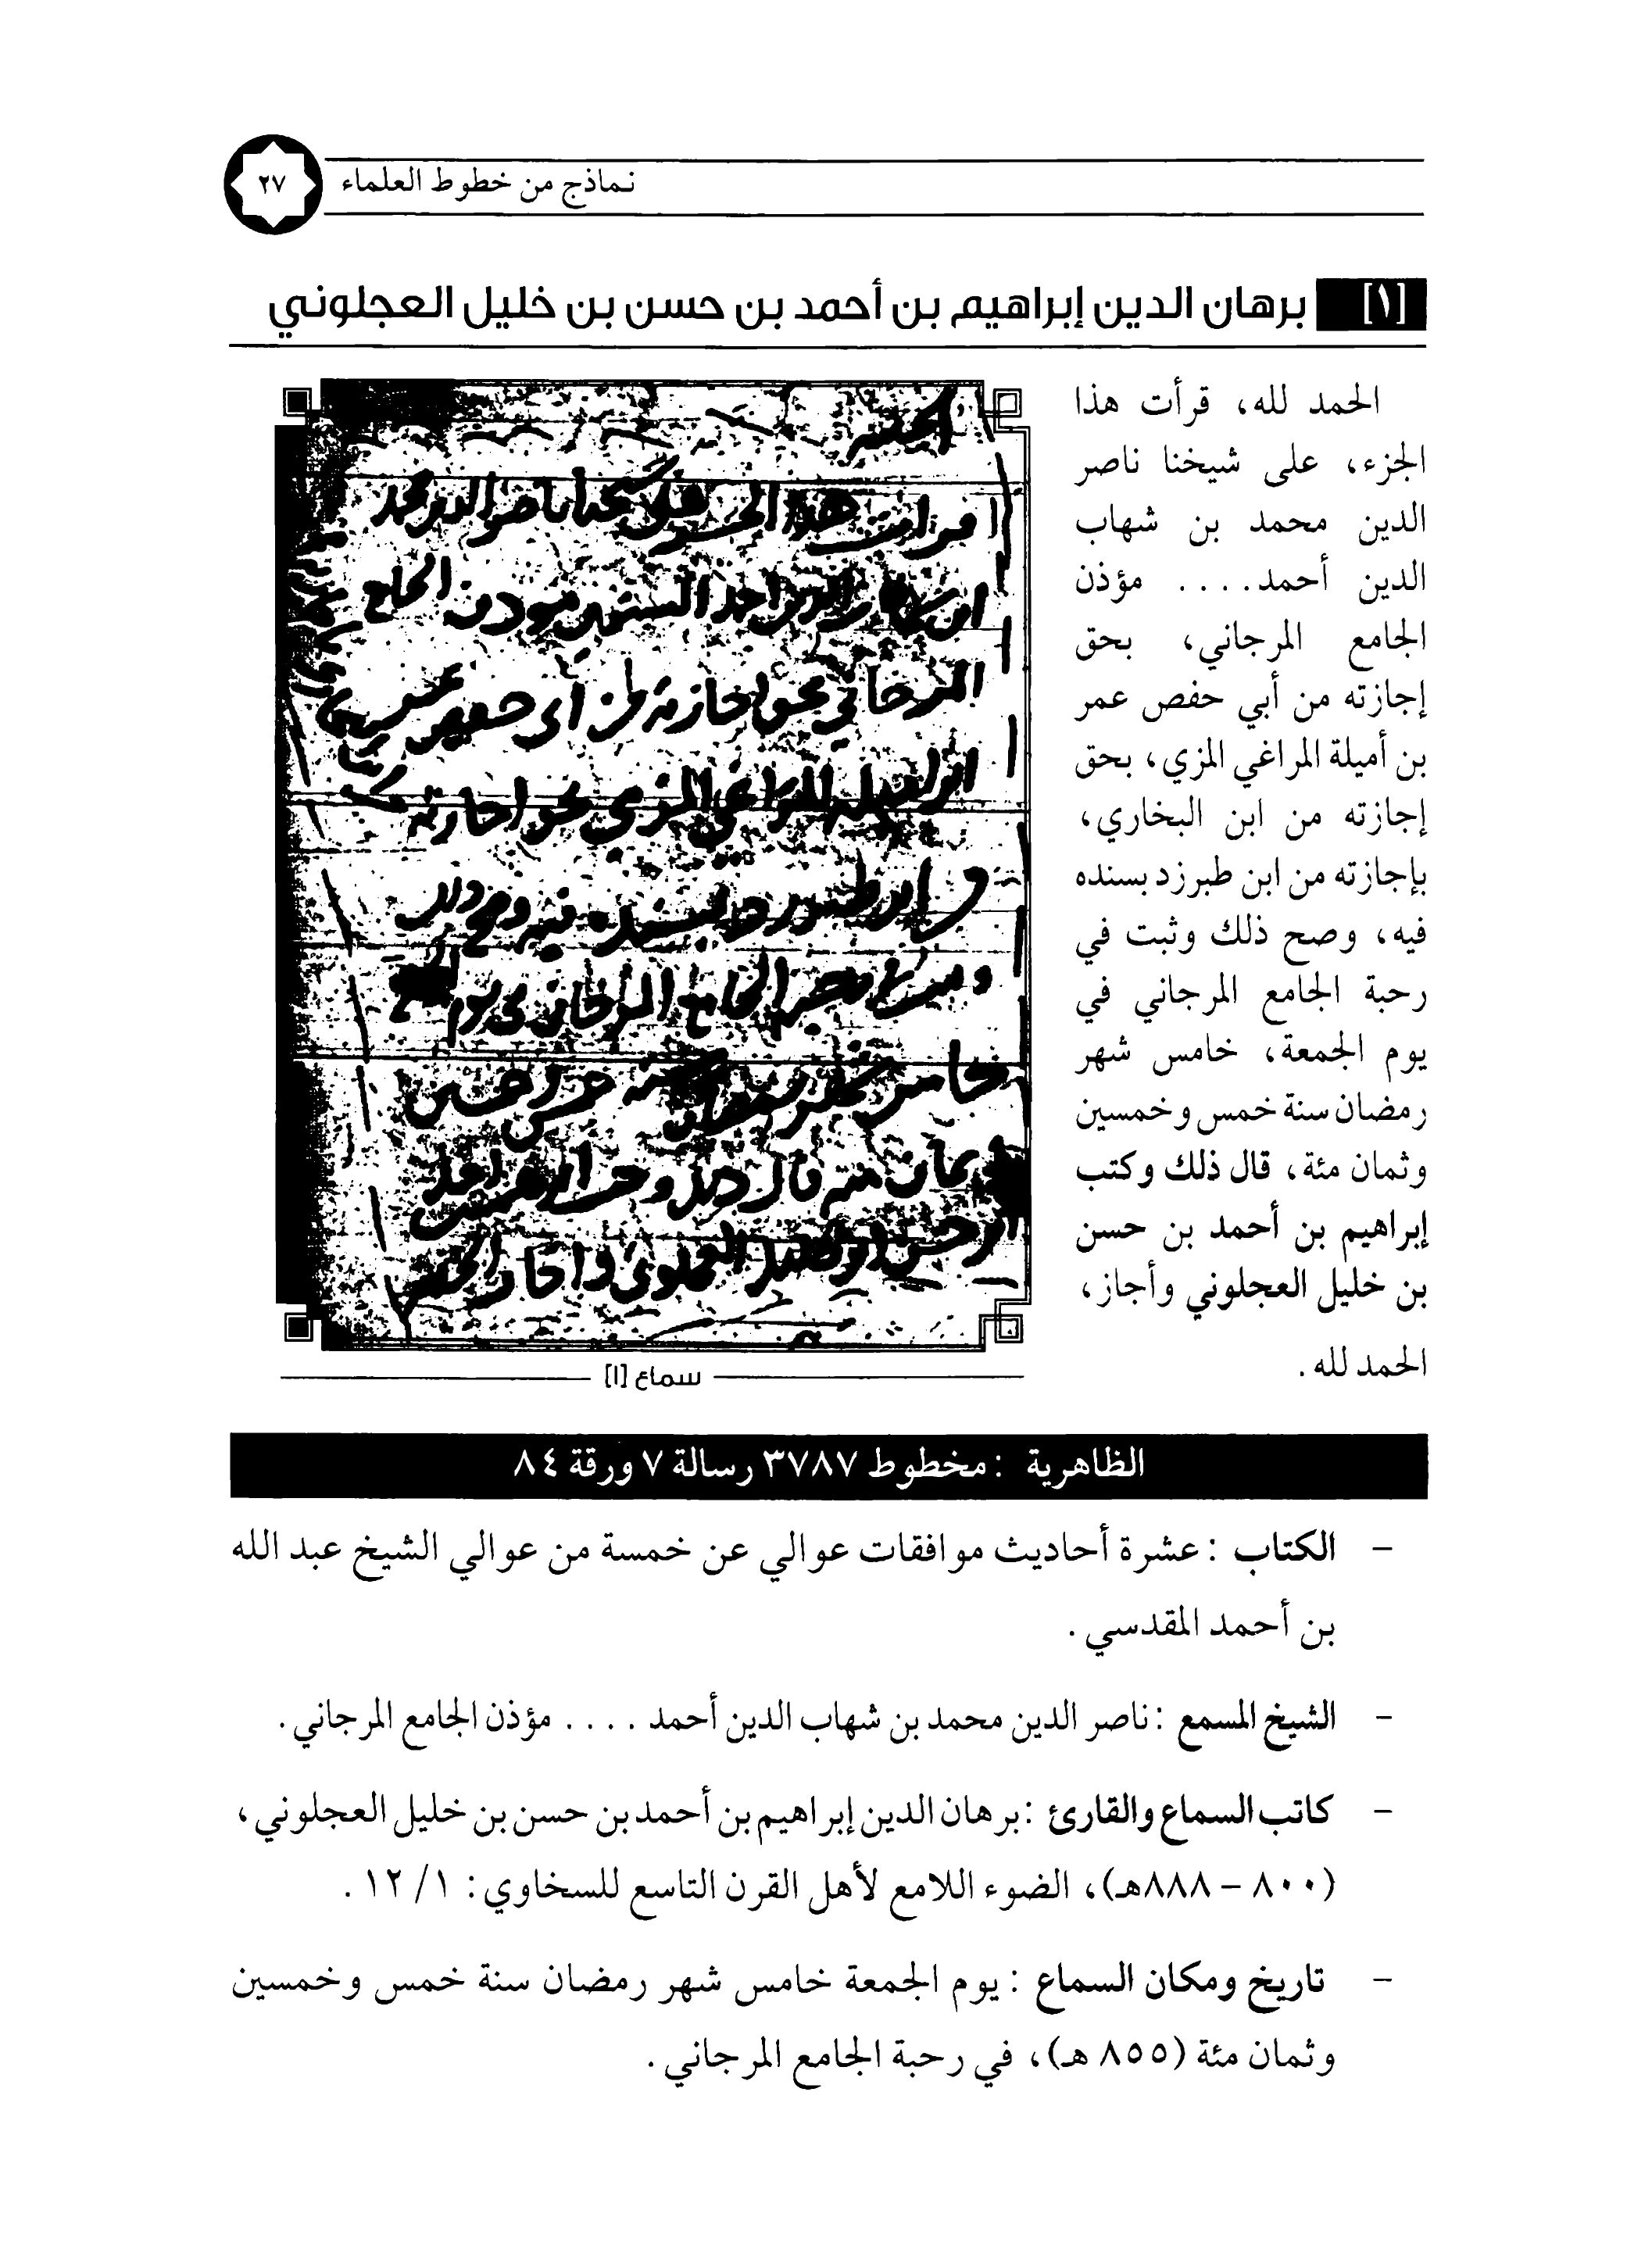 نماذج من خطوط العلماء ٢٧
[١] برهان الدين إبراهيم بن أحمد بن حسن بن خليل العجلوني
الحمد لله، قرأت هذا
الجزء، على شيخنا ناصر
الدين محمد بن شهاب
الدين أحمد.... مؤذن
الجامع المرجاني، بحق
إجازته من أبي حفص عمر
بن أميلة المراغي المزي، بحق
إجازته من ابن البخاري،
بإجازته من ابن طبرزد بسنده
فيه، وصح ذلك وثبت في
رحبة الجامع المرجاني في
يوم الجمعة، خامس شهر
رمضان سنة خمس وخمسين
وثمان مئة، قال ذلك وكتب
إبراهيم بن أحمد بن حسن
بن خليل العجلوني وأجاز،
الحمد لله.
سماع [١]
الظاهرية : مخطوط ٣٧٨٧ رسالة ٧ ورقة ٨٤
- الكتاب : عشرة أحاديث موافقات عوالي عن خمسة من عوالي الشيخ عبد الله
بن أحمد المقدسي.
- الشيخ المسمع : ناصر الدين محمد بن شهاب الدين أحمد .... مؤذن الجامع المرجاني.
- كاتب السماع والقارئ : برهان الدين إبراهيم بن أحمد بن حسن بن خليل العجلوني،
(٨٠٠ – ٨٨٨هـ)، الضوء اللامع لأهل القرن التاسع للسخاوي: ١/ ١٢.
- تاريخ ومكان السماع : يوم الجمعة خامس شهر رمضان سنة خمس وخمسين
وثمان مئة (٨٥٥ هـ)، في رحبة الجامع المرجاني.